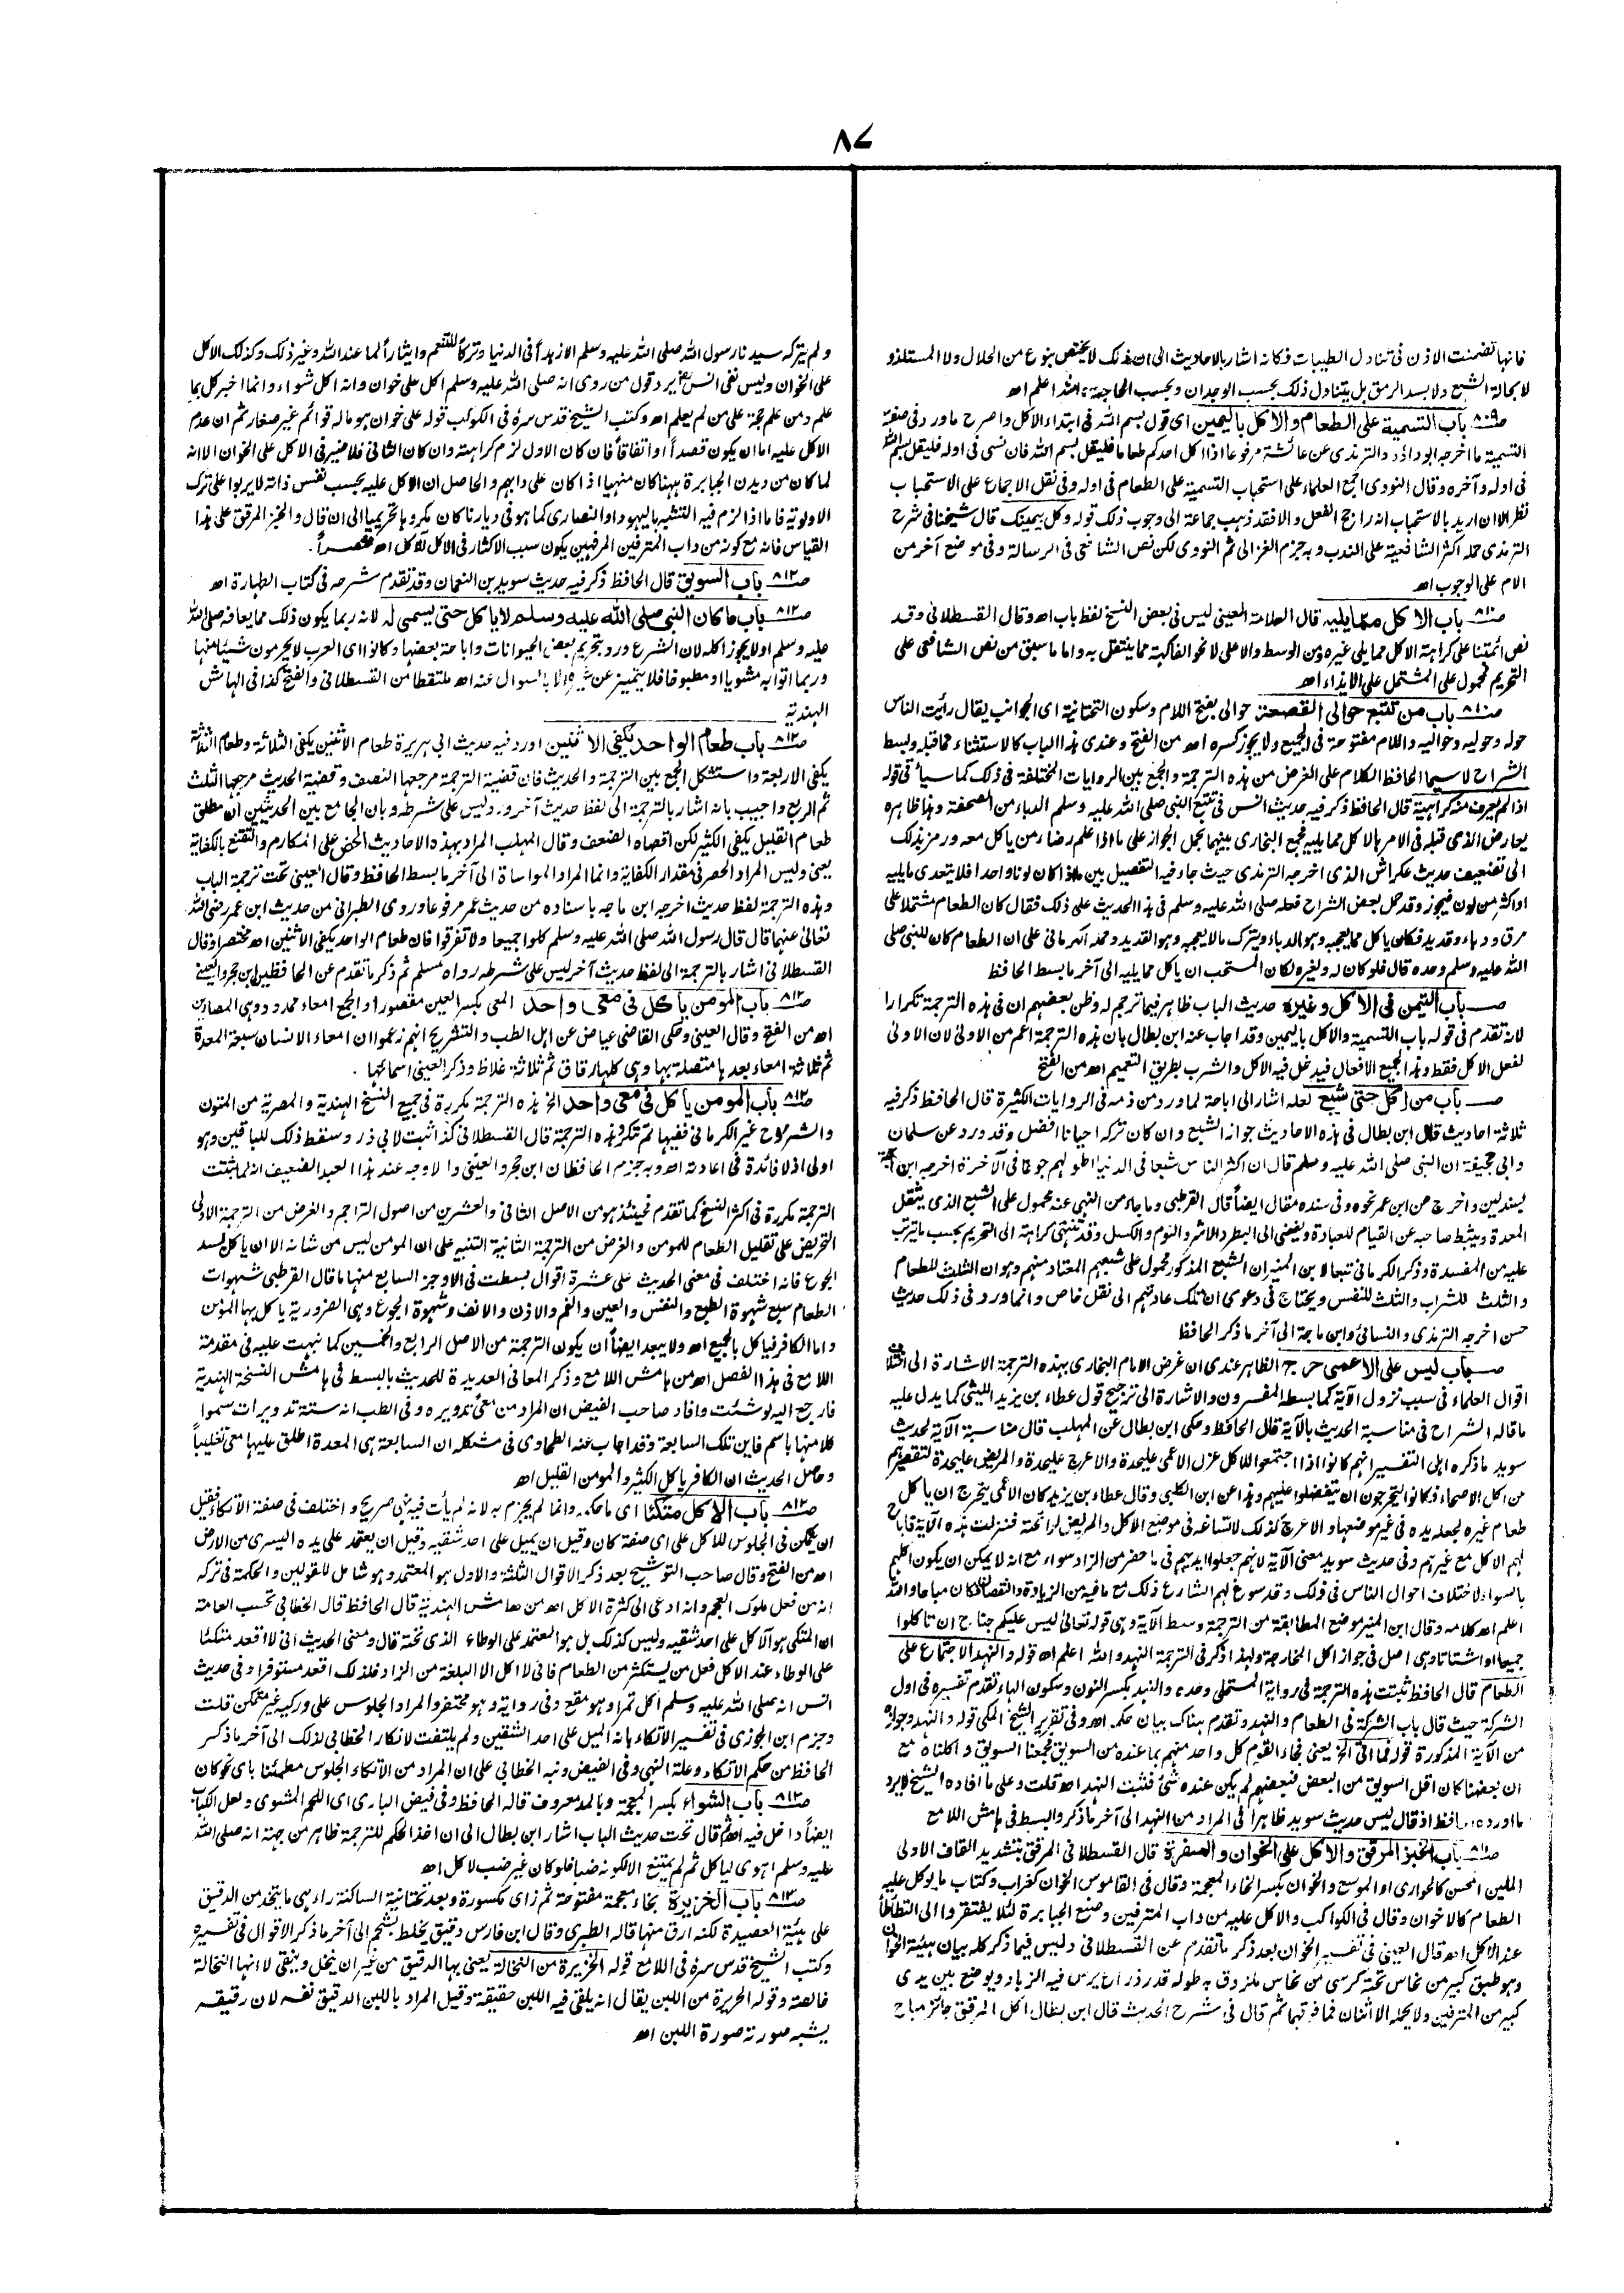 ٨٧
فانها تضمنت الاذن فى تناول الطيبات فكانه اشار بالاحاديث الى ان ذلك لا يختص بنوع من الحلال ولا المستلذ و
لا بحالة الشبع ولا بسد الرمق بل يتناول ذلك بحسب الوجدان وبحسب الحاجة والله اعلم اھ
صـ٨٠٩ باب التسمية على الطعام والاكل باليمين اى قول بسم الله فى ابتداء الاكل واصرح ما ورد فى صفة
التسمية ما اخرجه ابو داؤد والترمذى عن عائشة مرفوعا اذا اكل احدكم طعاما فليقل بسم الله فان نسى فى اوله فليقل بسم الله
فى اوله وآخره وقال النووى اجمع العلماء على استحباب التسمية على الطعام فى اوله وفى نقل الاجماع على الاستحباب
نظر الا ان اريد بالاستحباب انه راجح الفعل والا فقد ذهب جماعة الى وجوب ذلك قوله وكل بيمينك قال شيخنا فى شرح
الترمذى حمله اكثر الشافعية على الندب وبه جزم الغزالى ثم النووى لكن نص الشافعى فى الرسالة وفى موضع آخر من
الام على الوجوب اھ
صـ٨١٠ باب الاكل مما يليه قال العلامة العينى ليس فى بعض النسخ لفظ باب اھ وقال القسطلانى وقد
نص ائمتنا على كراهة الاكل مما يلى غيره ومن الوسط والاعلى لا نحو الفاكهة مما يتنقل به واما ما سبق من نص الشافعى على
التحريم فمحمول على المشتمل على الايذاء اھ
صـ٨١٠ باب من تتبع حوالى القصعة حوالى بفتح اللام وسكون التحتانية اى الجوانب يقال رأيت الناس
حوله وحوليه وحواليه واللام مفتوحة فى الجميع ولا يجوز كسره اھ من الفتح وعندى هذا الباب كالاستثناء مما قبله وبسط
الشراح لاسيما الحافظ الكلام على الغرض من هذه الترجمة والجمع بين الروايات المختلفة فى ذلك كما سيأتى قوله
اذا لم يعرف منه كراهية قال الحافظ ذكر فيه حديث انس فى تتبع النبى صلى الله عليه وسلم الدباء من الصحفة وهذا ظاهره
يعارض الذى قبله فى الامر بالاكل مما يليه فجمع البخارى بينهما بحمل الجواز على ما اذا علم رضاء من ياكل معه ورمز بذلك
الى تضعيف حديث عكراش الذى اخرجه الترمذى حيث جاء فيه التفصيل بين ما اذا كان لونا واحدا فلا يتعدى ما يليه
او اكثر من لون فيجوز وقد حمل بعض الشراح فعله صلى الله عليه وسلم فى هذا الحديث على ذلك فقال كان الطعام مشتملا على
مرق ودباء وقديد فكان ياكل مما يعجبه وهو الدباء ويترك ما لا يعجبه وهو القديد وحمله الكرمانى على ان الطعام كان للنبى صلى
الله عليه وسلم وحده قال فلو كان له ولغيره لكان المستحب ان ياكل مما يليه الى آخر ما بسط الحافظ
صـ باب التيمن فى الاكل وغيره حديث الباب ظاهر فيما ترجم له وظن بعضهم ان فى هذه الترجمة تكرارا
لانه تقدم فى قوله باب التسمية والاكل باليمين وقد اجاب عنه ابن بطال بان هذه الترجمة اعم من الاولى لان الاولى
لفعل الاكل فقط وهذا لجميع الافعال فيدخل فيه الاكل والشرب بطريق التعميم اھ من الفتح
صـ باب من اكل حتى شبع لعله اشار الى اباحة لما ورد من ذمه فى الروايات الكثيرة قال الحافظ ذكر فيه
ثلاثة احاديث قال ابن بطال فى هذه الاحاديث جواز الشبع وان كان تركه احيانا افضل وقد ورد عن سلمان
وابى جحيفة ان النبى صلى الله عليه وسلم قال ان اكثر الناس شبعا فى الدنيا اطولهم جوعا فى الآخرة اخرجه ابن ماجة
بسند لين واخرج عن ابن عمر نحوه وفى سنده مقال ايضاً قال القرطبى وما جاء من النهى عنه محمول على الشبع الذى يثقل
المعدة ويثبط صاحبه عن القيام للعبادة ويفضى الى البطر والاشر والنوم والكسل وقد تنتهى كراهته الى التحريم بحسب ما يترتب
عليه من المفسدة وذكر الكرمانى تبعا لابن المنير ان الشبع المذكور محمول على شبعهم المعتاد منهم وهو ان الثلث للطعام
والثلث للشراب والثلث للنفس ويحتاج فى دعوى ان تلك عادتهم الى نقل خاص وانما ورد فى ذلك حديث
حسن اخرجه الترمذى والنسائى وابن ماجة الى آخر ما ذكر الحافظ
صـ باب ليس على الاعمى حرج الظاهر عندى ان غرض الامام البخارى بهذه الترجمة الاشارة الى اختلاف
اقوال العلماء فى سبب نزول الآية كما بسطه المفسرون والاشارة الى ترجيح قول عطاء بن يزيد الليثى كما يدل عليه
ما قاله الشراح فى مناسبة الحديث بالآية قال الحافظ وحكى ابن بطال عن المهلب قال مناسبة الآية لحديث
سويد ما ذكره اهل التفسير انهم كانوا اذا اجتمعوا للاكل عزل الاعمى عليحدة والاعرج عليحدة والمريض عليحدة لتقصيرهم
من اكل الاصحاء فكانوا يتحرجون ان يتفضلوا عليهم وهذا عن ابن الكلبى وقال عطاء بن يزيد كان الاعمى يتحرج ان ياكل
طعام غيره لجعله يده فى غير موضعها والاعرج كذلك لاتساعه فى موضع الاكل والمريض لرائحته فنزلت هذه الآية فاباح
لهم الاكل مع غيرهم وفى حديث سويد معنى الآية لانهم جعلوا ايديهم فى ما حضر من الزاد سواء مع انه لا يمكن ان يكون اكلهم
بالسواء لاختلاف احوال الناس فى ذلك وقد سوغ لهم الشارع ذلك مع ما فيه من الزيادة والنقصان فكان مباحا والله
اعلم اھ كلامه وقال ابن المنير موضع المطابقة من الترجمة وسط الآية وهى قوله تعالى ليس عليكم جناح ان تاكلوا
جميعا او اشتاتا وهى اصل فى جواز اكل المخارجة ولهذا ذكر فى الترجمة النهد والله اعلم اھ قوله والنهد الاجتماع على
الطعام قال الحافظ ثبتت هذه الترجمة فى رواية المستملى وحده والنهد بكسر النون وسكون الهاء تقدم تفسيره فى اول
الشركة حيث قال باب الشركة فى الطعام والنهد وتقدم هناك بيان حكمه اھ وفى تقرير الشيخ المكى قوله والنهد وجوازه
من الآية المذكورة قوله فما اتى الخ يعنى فجاء القوم كل واحد منهم بما عنده من السويق فجمعنا السويق واكلناه مع
ان بعضنا كان اقل السويق من البعض فبعضهم لم يكن عنده شئ فثبت النهد اھ قلت وعلى ما افاده الشيخ لا يرد
ما اورده الحافظ اذ قال ليس حديث سويد ظاهرا فى المراد من النهد الى آخر ما ذكر والبسط فى هامش اللامع
صـ٨١١ باب الخبز المرقق والاكل على الخوان والسفرة قال القسطلانى المرقق بتشديد القاف الاولى
الملين المحسن كالحوارى او الموسع والخوان بكسر الخاء المعجمة وقال فى القاموس الخوان كغراب وكتاب ما يوكل عليه
الطعام كالاخوان وقال فى الكواكب والاكل عليه من داب المترفين وصنع الجبابرة لئلا يفتقروا الى التطاطأ
عند الاكل اھ قال العينى فى تفسير الخوان بعد ذكر ما تقدم عن القسطلانى وليس فيما ذكر كله بيان هيئة الخوان
وهو طبق كبير من نحاس تحته كرسى من نحاس ملزوق به طوله قدر ذراع يرس فيه الزباد ويوضع بين يدى
كبير من المترفين ولا يحمله الا اثنان فما فوقهما ثم قال فى شرح الحديث قال ابن بطال اكل المرقق جائز مباح
ولم يتركه سيدنا رسول الله صلى الله عليه وسلم الا زهداً فى الدنيا وتركاً للتنعم وايثاراً لما عند الله وغير ذلك وكذلك الاكل
على الخوان وليس نفى انس يرد قول من روى انه صلى الله عليه وسلم اكل على خوان وانه اكل شواء وانما اخبر كل بما
علم ومن علم حجة على من لم يعلم اھ وكتب الشيخ قدس سره فى الكوكب قوله على خوان هو ما له قوائم غير صغار ثم ان عدم
الاكل عليه اما ان يكون قصداً او اتفاقاً فان كان الاول لزم كراهته وان كان الثانى فلا ضير فى الاكل على الخوان الا انه
لما كان من ديدن الجبابرة ههنا كان منهيا اذا كان على دابهم والحاصل ان الاكل عليه بحسب نفس ذاته لا يربو على ترك
الاولوية فاما اذا لزم فيه التشبه باليهود او النصارى كما هو فى ديارنا كان مكروها تحريميا الى ان قال والخبز المرقق على هذا
القياس فانه مع كونه من داب المترفين المرفهين يكون سبب الاكثار فى الاكل للآكل اھ مختصراً.
صـ٨١٢ باب السويق قال الحافظ ذكر فيه حديث سويد بن النعمان وقد تقدم شرحه فى كتاب الطهارة اھ
صـ٨١٢ باب ما كان النبى صلى الله عليه وسلم لا ياكل حتى يسمى له لانه ربما يكون ذلك مما يعافه صلى الله
عليه وسلم او لا يجوز اكله لان الشرع ورد بتحريم بعض الحيوانات واباحة بعضها وكانوا اى العرب لا يحرمون شيئا منها
وربما اتوا به مشويا او مطبوخا فلا يتميز عن غيره الا بالسوال عنه اھ ملتقطا من القسطلانى والفتح كذا فى الهامش
الهندية
صـ٨١٢ باب طعام الواحد يكفى الاثنين اورد فيه حديث ابى هريرة طعام الاثنين يكفى الثلاثة وطعام الثلاثة
يكفى الاربعة واستشكل الجمع بين الترجمة والحديث فان قضية الترجمة مرجعها النصف وقضية الحديث مرجعها الثلث
ثم الربع واجيب بانه اشار بالترجمة الى لفظ حديث آخر ورد ليس على شرطه وبان الجامع بين الحديثين ان مطلق
طعام القليل يكفى الكثير لكن اقصاه الضعف وقال المهلب المراد بهذه الاحاديث الحض على المكارم والتقنع بالكفاية
يعنى وليس المراد الحصر فى مقدار الكفاية وانما المراد المواساة الى آخر ما بسط الحافظ وقال العينى تحت ترجمة الباب
وهذه الترجمة لفظ حديث اخرجه ابن ماجه باسناده من حديث عمر مرفوعا وروى الطبرانى من حديث ابن عمر رضى الله
تعالى عنهما قال قال رسول الله صلى الله عليه وسلم كلوا جميعا ولا تفرقوا فان طعام الواحد يكفى الاثنين اھ مختصرا وقال
القسطلانى اشار بالترجمة الى لفظ حديث آخر ليس على شرطه رواه مسلم ثم ذكر ما تقدم عن الحافظين ابن حجر والعينى
صـ٨١٢ باب المومن ياكل فى معى واحد المعى بكسر العين مقصورا والجمع امعاء ممدود وهى المصارين
اھ من الفتح وقال العينى وحكى القاضى عياض عن اهل الطب والتشريح انهم زعموا ان امعاء الانسان سبعة المعدة
ثم ثلاثة امعاء بعدها متصلة بها وهى كلها رقاق ثم ثلاثة غلاظ وذكر العينى اسمائها.
صـ٨١٢ باب المومن ياكل فى معى واحد الخ هذه الترجمة مكررة فى جميع النسخ الهندية والمصرية من المتون
والشروح غير الكرمانى ففيها لم تكرر هذه الترجمة قال القسطلانى كذا ثبت لابى ذر وسقط ذلك للباقين وهو
اولى اذ لا فائدة فى اعادته اھ وبه جزم الحافظان ابن حجر والعينى والاوجه عند هذا العبد الضعيف انه لما ثبتت
الترجمة مكررة فى اكثر النسخ كما تقدم فحينئذ هو من الاصل الثانى والعشرين من اصول التراجم والغرض من الترجمة الاولى
التحريض على تقليل الطعام للمومن والغرض من الترجمة الثانية التنبيه على ان المومن ليس من شانه الا ان ياكل لسد
الجوع فانه اختلف فى معنى الحديث على عشرة اقوال بسطت فى الاوجز السابع منها ما قال القرطبى شهوات
الطعام سبع شهوة الطبع والنفس والعين والفم والاذن والانف وشهوة الجوع وهى الضرورية ياكل بها المؤمن
واما الكافر فياكل بالجميع اھ ولا يبعد ايضاً ان يكون الترجمة من الاصل الرابع والخمسين كما نبهت عليه فى مقدمة
اللامع فى هذا الفصل اھ من هامش اللامع وذكر المعانى العديدة للحديث بالبسط فى هامش النسخة الهندية
فارجع اليه لو شئت وافاد صاحب الفيض ان المراد من معى تدويره وفى الطب انه ستة تدويرات سموا
كلا منها باسم فاين تلك السابعة وقد اجاب عنه الطحاوى فى مشكله ان السابعة هى المعدة اطلق عليها معى تغليباً
وحاصل الحديث ان الكافر ياكل الكثير والمومن القليل اھ
صـ٨١٢ باب الاكل متكئا اى ما حكمه وانما لم يجزم به لانه لم يأت فيه نهى صريح واختلف فى صفة الاتكاء فقيل
ان يتمكن فى الجلوس للاكل على اى صفة كان وقيل ان يميل على احد شقيه وقيل ان يعتمد على يده اليسرى من الارض
اھ من الفتح وقال صاحب التوشيح بعد ذكر الاقوال الثلثة والاول هو المعتمد وهو شامل للقولين والحكمة فى تركه
انه من فعل ملوك العجم وانه ادعى الى كثرة الاكل اھ من هامش الهندية قال الحافظ قال الخطابى تحسب العامة
ان المتكى هو الآكل على احد شقيه وليس كذلك بل هو المعتمد على الوطاء الذى تحته قال ومعنى الحديث انى لا اقعد متكئا
على الوطاء عند الاكل فعل من يستكثر من الطعام فانى لا اكل الا البلغة من الزاد فلذلك اقعد مستوفزا وفى حديث
انس انه صلى الله عليه وسلم اكل تمرا وهو مقع وفى رواية وهو محتفز والمراد الجلوس على وركيه غير متمكن قلت
وجزم ابن الجوزى فى تفسير الاتكاء بانه الميل على احد الشقين ولم يلتفت لانكار الخطابى لذلك الى آخر ما ذكر
الحافظ من حكم الاتكاء وعلة النهى وفى الفيض ونبه الخطابى على ان المراد من الاتكاء الجلوس مطمئنا باى نحو كان
صـ٨١٢ باب الشواء بكسر المعجمة وبالمد معروف قاله الحافظ وفى فيض البارى اى اللحم المشوى ولعل الكباب
ايضاً داخل فيه اھ ثم قال تحت حديث الباب اشار ابن بطال الى ان اخذ الحكم للترجمة ظاهر من جهة انه صلى الله
عليه وسلم اهوى لياكل ثم لم يمتنع الا لكونه ضبا فلو كان غير ضب لاكل اھ
صـ٨١٢ باب الخزيرة بخاء معجمة مفتوحة ثم زاى مكسورة وبعد تحتانية الساكنة راء هى ما يتخذ من الدقيق
على هيئة العصيدة لكنه ارق منها قاله الطبرى وقال ابن فارس دقيق يخلط بشحم الى آخر ما ذكر الاقوال فى تفسيره
وكتب الشيخ قدس سره فى اللامع قوله الخزيرة من النخالة يعنى بها الدقيق من غير ان ينخل وينقى لا انها النخالة
خالصة وقوله الحريرة من اللبن يقال انه يلقى فيه اللبن حقيقة وقيل المراد باللبن الدقيق نفسه لان رقيقه
يشبه صورته صورة اللبن اھ